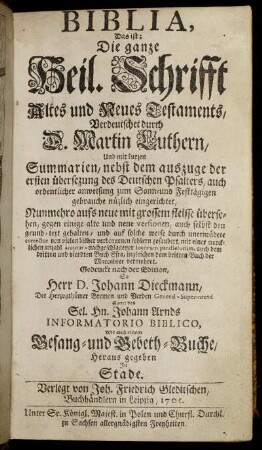 BIBLIA,
Das ist:
Die gantze
Heil. Schrifft
Altes und Neues Testaments/
Verdeutschet durch
D. Martin Luthern,
Und mit kurtzen
Summarien, nebst dem auszuge der
ersten übersetzung des Deutschen Psalters, auch
ordentlicher anweisung zum Sonn- und Festtägigen
gebrauche nützlich eingerichtet,
Nunmehro aufs neue mit grossem fleisse überse-
hen, gegen einige alte und neue versionen, auch selbst den
grund-text gehalten, und auf solche weise durch unermüdete
von vielen bisher verborgenen fehlern gesäubert, mit einer
dritten und vierdten Buch Esra, ingleichen dem dritten Buch der
Maccabäer vermehret.
Gedruckt nach der Edition,
So
Herr D. Johann Dieckmann,
Der Hertzogthümer Bremen und Verden General-Superintend.
Sel. Hn. Johann Arnds
INFORMATORIO BIBLICO,
wie auch einem
Gesang- und Gebeth-Buche,
Heraus gegeben
In
Stade.
Verlegt von Joh. Friedrich Gleditschen,
Buchhändlern in Leipzig, 170
Unter Sr. Königl. Majest. in Polen und Churfl. Durchl.
zu Sachsen allergnädigsten Freyheiten.